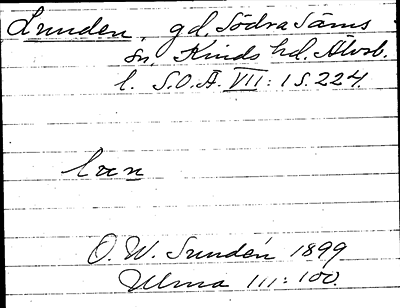 Lunden, gd. Södra Säms
sn, Kinds hd. Älvsb.
l. S.O.Ä. VII: 1 S. 224.
O. W. Sundén 1899
Ulma 111: 100.